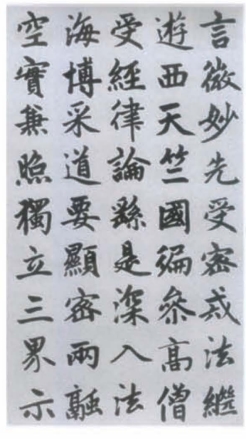 言微妙先受密戒法繼
遊西天竺國徧叅高僧
受經律論繇是深入法
海博采道要顯密兩融
空實兼照獨立三界示